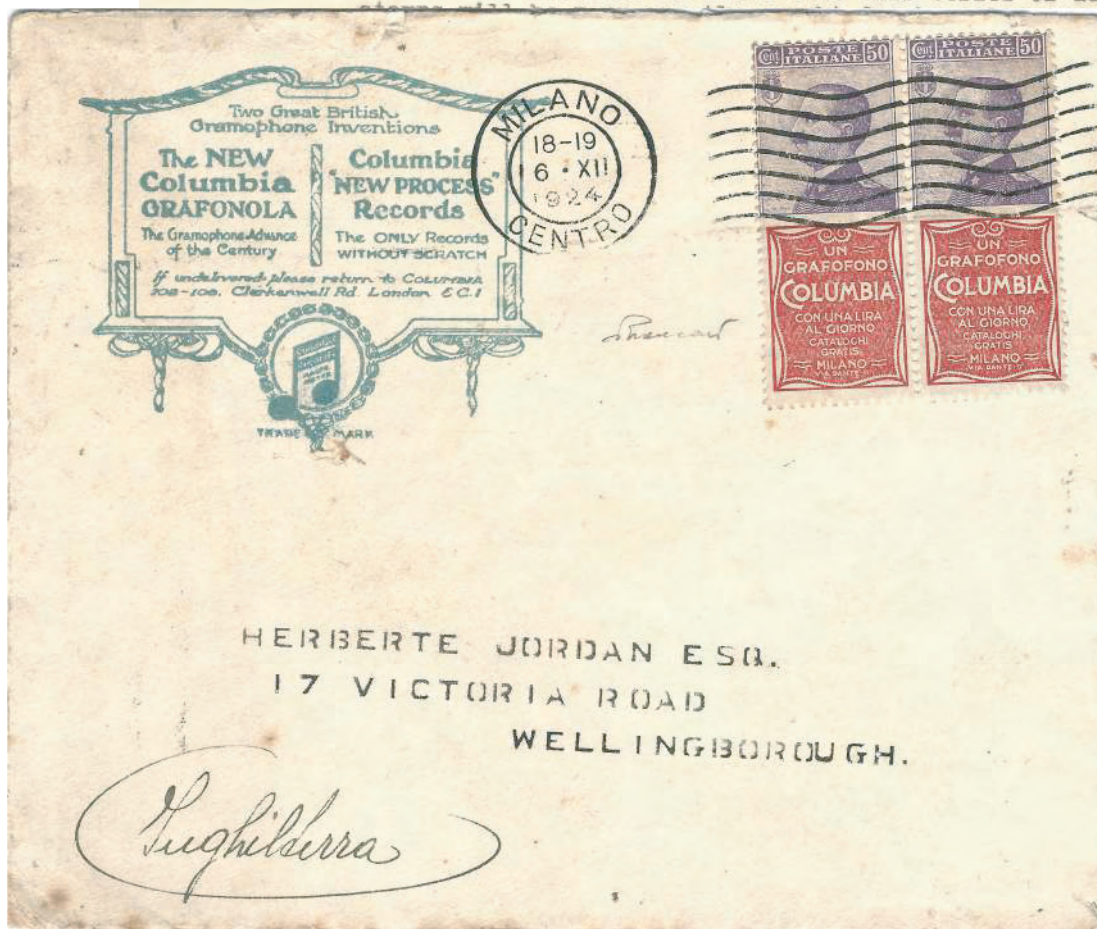 stamps will be
Two Great British
Gramophone Inventions
The NEW
Columbia
GRAFONOLA
The Gramophone Advance
of the Century
Columbia
"NEW PROCESS"
Records
The ONLY Records
WITHOUT SCRATCH
If undelivered please return to COLUMBIA
102-108, Clerkenwell Rd. London E.C.1
TRADE MARK
MILANO
18-19
6 · XII
1924
CENTRO
Cent POSTE ITALIANE 50
Cent POSTE ITALIANE 50
UN
GRAFOFONO
COLUMBIA
CON UNA LIRA
AL GIORNO
CATALOGHI
GRATIS
MILANO
VIA DANTE 9
UN
GRAFOFONO
COLUMBIA
CON UNA LIRA
AL GIORNO
CATALOGHI
GRATIS
MILANO
VIA DANTE 9
HERBERTE JORDAN ESQ.
17 VICTORIA ROAD
WELLINGBOROUGH.
Inghilterra